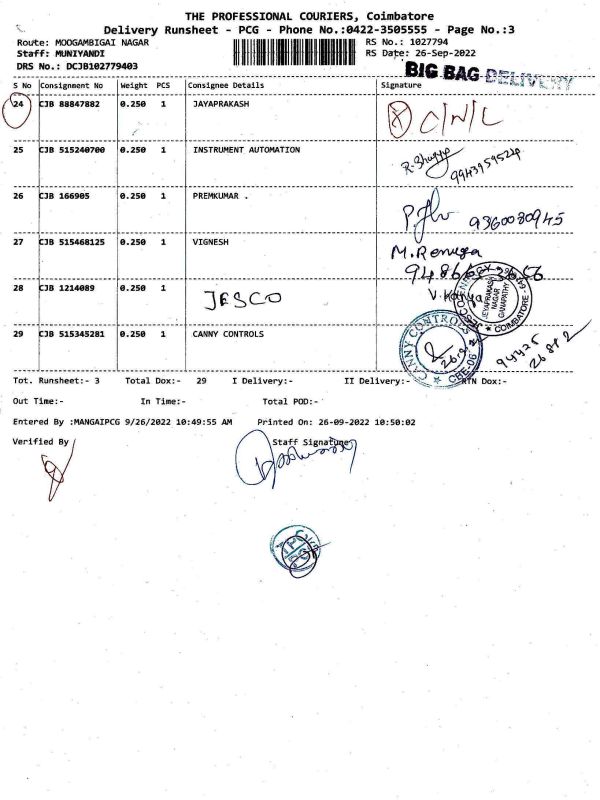 THE PROFESSIONAL COURIERS, Coimbatore
Delivery Runsheet - PCG - Phone No.:0422-3505555 - Page No.:3
Route: MOOGAMBIGAI NAGAR RS No.: 1027794
Staff: MUNIYANDI RS Date: 26-Sep-2022
DRS No.: DCJB102779403
BIG BAG DELIVERY
S No Consignment No Weight PCS Consignee Details Signature
24 CJB 88847882 0.250 1 JAYAPRAKASH C/N/L
25 CJB 515240700 0.250 1 INSTRUMENT AUTOMATION
26 CJB 166905 0.250 1 PREMKUMAR . 9360080945
27 CJB 515468125 0.250 1 VIGNESH M.Renuga
28 CJB 1214089 0.250 1 JESCO V.Kavya
JEYAPRAKASH NAGAR GANAPATHY COIMBATORE
29 CJB 515345281 0.250 1 CANNY CONTROLS
CANNY CONTROLS CBE-06
Tot. Runsheet:- 3 Total Dox:- 29 I Delivery:- II Delivery:- RTN Dox:-
Out Time:- In Time:- Total POD:-
Entered By :MANGAIPCG 9/26/2022 10:49:55 AM Printed On: 26-09-2022 10:50:02
Verified By Staff Signature